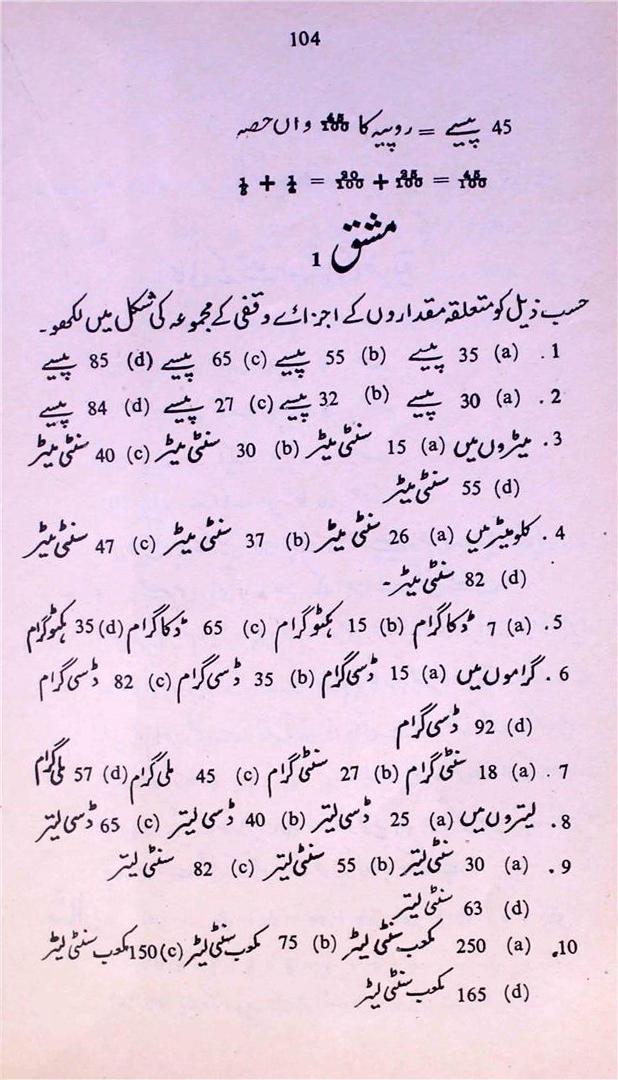 104
45 پیسے = روپیہ کا 45/100 واں حصہ
45/100 = 25/100 + 20/100 = 1/4 + 1/5
مشق 1
حسب ذیل کو متعلقہ مقداروں کے اجزائے وقفی کے مجموعہ کی شکل میں لکھو۔
1. (a) 35 پیسے (b) 55 پیسے (c) 65 پیسے (d) 85 پیسے
2. (a) 30 پیسے (b) 32 پیسے (c) 27 پیسے (d) 84 پیسے
3. میٹروں میں (a) 15 سنٹی میٹر (b) 30 سنٹی میٹر (c) 40 سنٹی میٹر
(d) 55 سنٹی میٹر
4. کلو میٹر میں (a) 26 سنٹی میٹر (b) 37 سنٹی میٹر (c) 47 سنٹی میٹر
(d) 82 سنٹی میٹر۔
5. (a) 7 ڈکاگرام (b) 15 ہکٹوگرام (c) 65 ڈکاگرام (d) 35 ہکٹوگرام
6. گراموں میں (a) 15 ڈسی گرام (b) 35 ڈسی گرام (c) 82 ڈسی گرام
(d) 92 ڈسی گرام
7. (a) 18 سنٹی گرام (b) 27 سنٹی گرام (c) 45 ملی گرام (d) 57 ملی گرام
8. لیتروں میں (a) 25 ڈسی لیتر (b) 40 ڈسی لیتر (c) 65 ڈسی لیتر
9. (a) 30 سنٹی لیتر (b) 55 سنٹی لیتر (c) 82 سنٹی لیتر
(d) 63 سنٹی لیتر
10. (a) 250 مکعب سنٹی لیٹر (b) 75 مکعب سنٹی لیٹر (c) 150 مکعب سنٹی لیٹر
(d) 165 مکعب سنٹی لیٹر